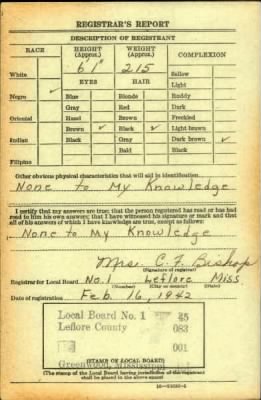 REGISTRAR'S REPORT
DESCRIPTION OF REGISTRANT
RACE HEIGHT (Approx.) WEIGHT (Approx.) COMPLEXION
6'1" 215
White Sallow
EYES HAIR Light
Negro ✓ Blue Blonde Ruddy
Gray Red Dark
Oriental Hazel Brown Freckled
Brown ✓ Black ✓ Light brown
Indian Black Gray Dark brown ✓
Bald Black
Filipino
Other obvious physical characteristics that will aid in identification
None to My Knowledge
I certify that my answers are true; that the person registered has read or has had
read to him his own answers; that I have witnessed his signature or mark and that
all of his answers of which I have knowledge are true, except as follows:
None to My Knowledge
Mrs. C. F. Bishop
(Signature of registrar)
Registrar for Local Board No. 1 Leflore Miss.
(Number) (City or county) (State)
Date of registration Feb. 16, 1942
Local Board No. 1 45
Leflore County 083
001
Greenwood, Mississippi
(STAMP OF LOCAL BOARD)
(The stamp of the Local Board having jurisdiction of the registrant
shall be placed in the above space)